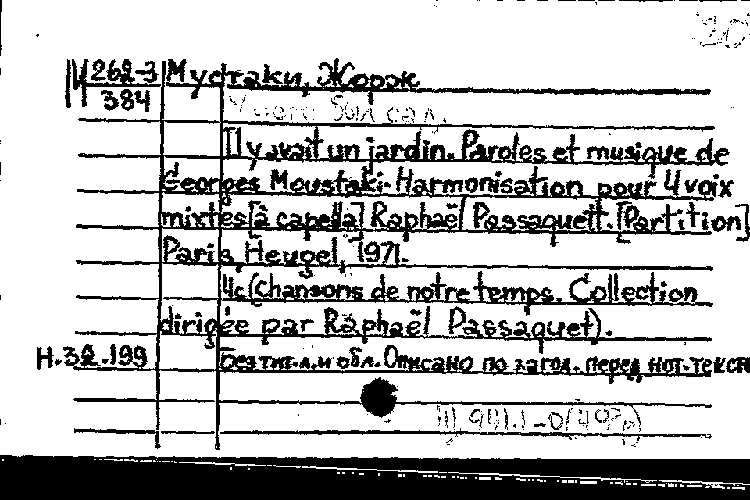 262-3 Мустаки, Жорж
384
Il y avait un jardin. Paroles et musique de
Georges Moustaki. Harmonisation pour 4 voix
mixtes [à capella] Raphaël Passaquett. [Partition]
Paris, Heugel, 1971.
4с (Chansons de notre temps. Collection
dirigée par Raphaël Passaquet).
Н.32.199 Без тит.л. и обл. Описано по загол. перед нот. текстом